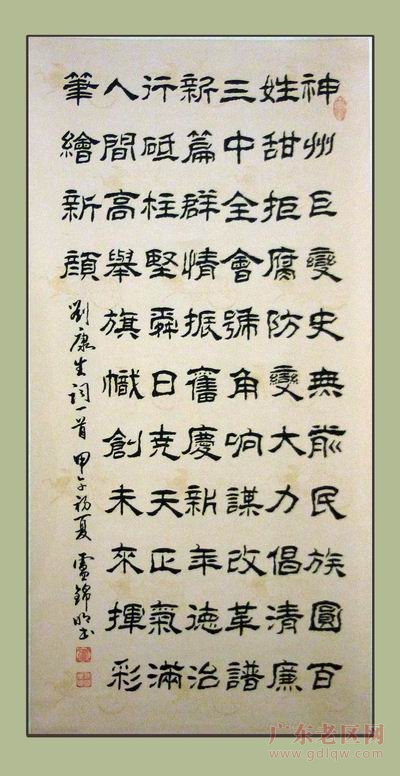 神州巨變史無前民族圓百
姓甜拒腐防變大力倡清廉
三中全會號角响謀改革譜
新篇群情振舊慶新年德治
行砥柱堅舜日尧天正氣滿
人間高舉旗幟創未來揮彩
筆繪新顔
劉康生詞一首 甲午初夏 錦明书
广东老区网
www.gdlqw.com